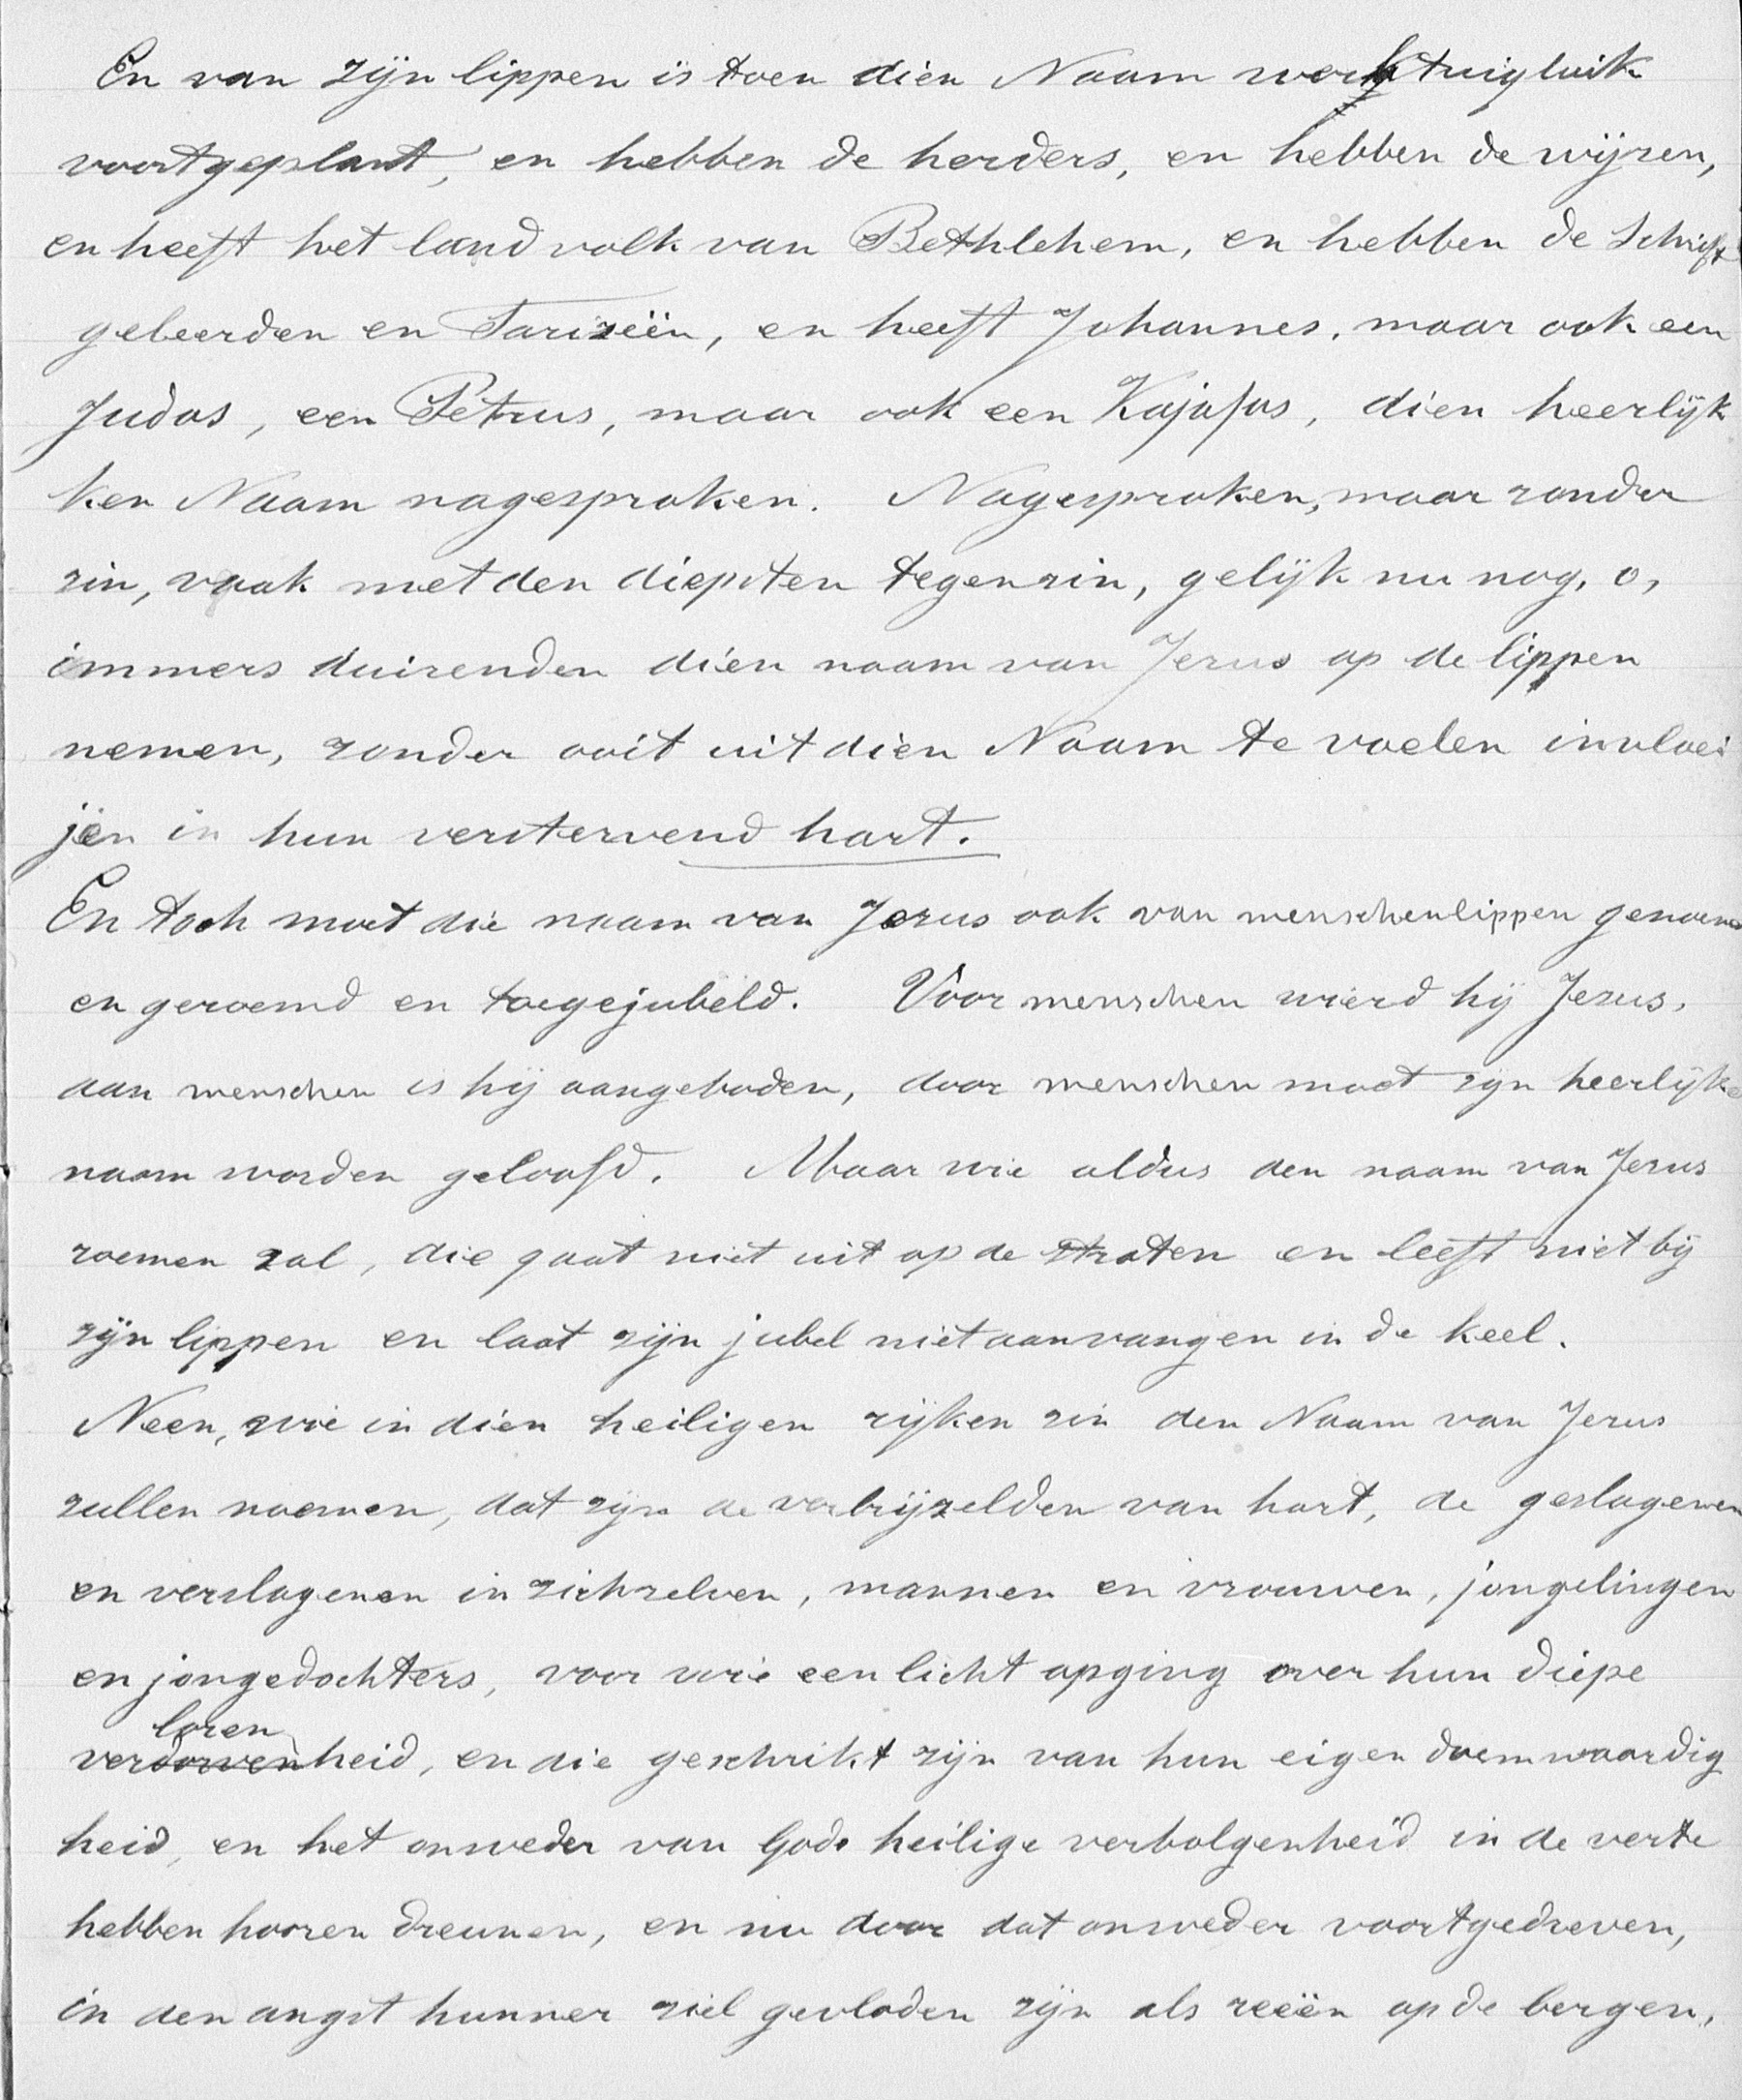 En van zijn lippen is toen dien Naam werktuigluik
voortgeplant, en hebben de herders, en hebben de wijzen,
en heeft het landvolk van Bethlehem, en hebben de Schrift
geleerden en Farizeën, en heeft Johannes, maar ook een
Judas, een Petrus, maar ook een Kajafas, dien heerlijk
ken Naam nagesproken. Nagesproken, maar zonder
zin, vaak met den diepsten tegenzin, gelijk nu nog, o,
immers duizenden dien naam van Jezus op de lippen
nemen, zonder ooit uit dien Naam te voelen invloei
jen in hun verstervend hart.
En toch moet die naam van Jezus ook van menschenlippen genoemd
en geroemd en toegejubeld. Voor menschen wierd hij Jezus,
aan menschen is hij aangeboden, door menschen moet zijn heerlijke
naam worden geloofd. Maar wie aldus den naam van Jezus
roemen zal, die gaat niet uit op de straten en leeft niet bij
zijn lippen en laat zijn jubel niet aanvangen in de keel.
Neen, wie in dien heiligen rijken zin den Naam van Jezus
zullen noemen, dat zijn de verbrijzelden van hart, de geslagenen
en verslagenen in zichzelven, mannen en vrouwen, jongelingen
en jongedochters, voor wie een licht opging over hun diepe
loren
verdorvenheid, en die geschrikt zijn van hun eigen doemwaardig
heid, en het onweder van Gods heilige verbolgenheid in de verte
hebben hooren dreunen, en nu door dat onweder voortgedreven,
in den angst hunner ziel gevloden zijn als reeën op de bergen,